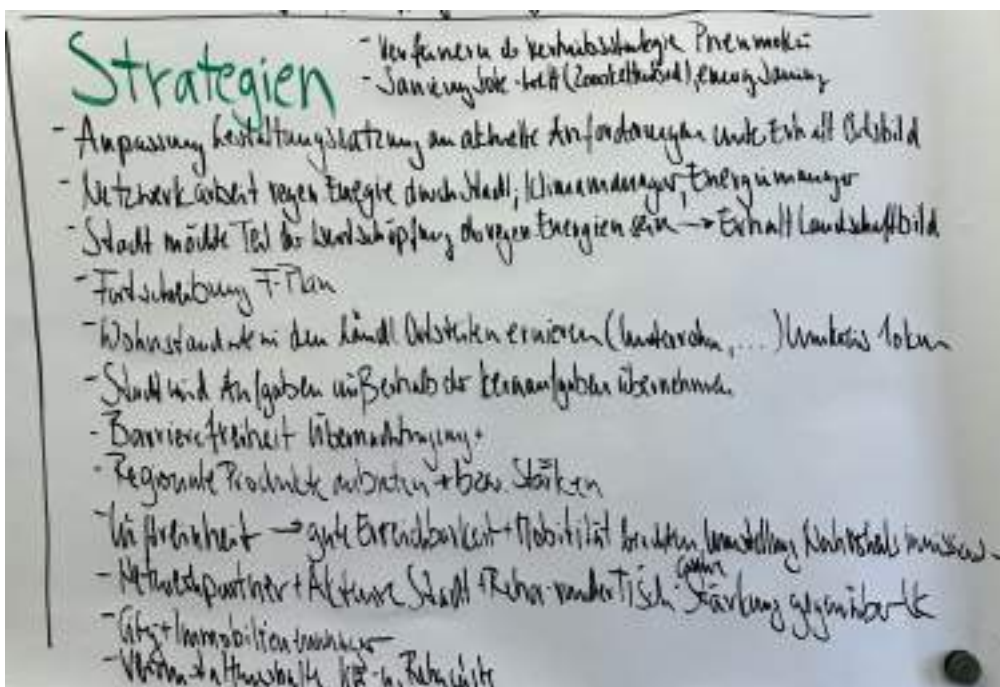 Strategien
- Verfeinern der Vertriebsstrategie
- Sanierung energ. Sanierung
- Anpassung Gestaltungssatzung an aktuelle Anforderungen unter Erhalt Ortsbild
- Netzwerkarbeit regen Energie durch Stadt, Klimamanager, Energiemanager
- Stadt möchte Teil der Wertschöpfung der regen Energien sein → Erhalt Landschaftbild
- Fortschreibung F-Plan
- Wohnstandorte in den ländl Ortsteilen eruieren ( ...) Umkreis 10km
- Stadt wird Aufgaben außerhalb der Kernaufgaben übernehmen
- Barrierefreiheit
- Regionale Produkte anbieten + bzw. Stärken
- Luftreinheit → gute Erreichbarkeit + Mobilität
- Netzwerkpartner + Akteure Stadt + Reha - runder Tisch Stärkung gegenüber
- City + Immobilien